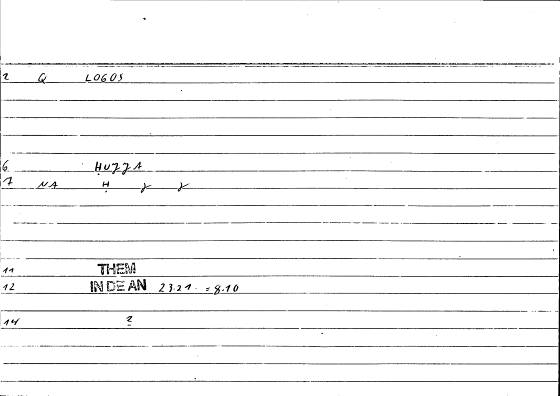 2 Q LOGOS
6 ḤUZZA
7 NA Ḥ Z Z
11 THEM
12 IN DE AN 23.21. = 8.10
14 2